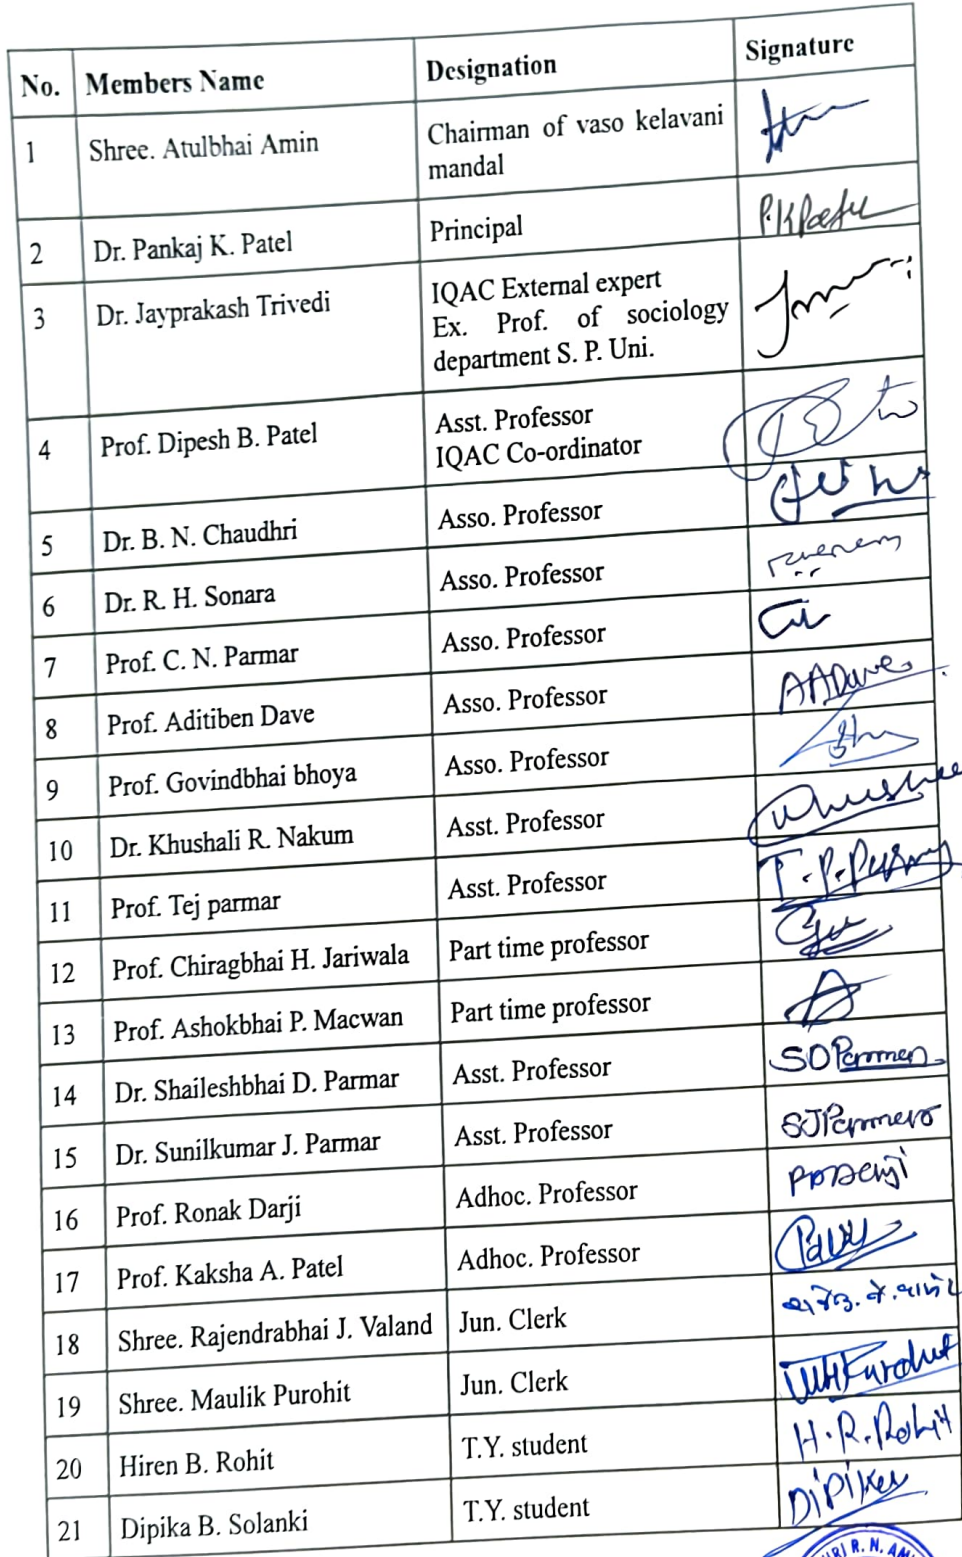 No. Members Name Designation Signature
1 Shree. Atulbhai Amin Chairman of vaso kelavani
mandal
2 Dr. Pankaj K. Patel Principal P.K Patel
3 Dr. Jayprakash Trivedi IQAC External expert
Ex. Prof. of sociology
department S. P. Uni.
4 Prof. Dipesh B. Patel Asst. Professor
IQAC Co-ordinator
5 Dr. B. N. Chaudhri Asso. Professor
6 Dr. R. H. Sonara Asso. Professor
7 Prof. C. N. Parmar Asso. Professor
8 Prof. Aditiben Dave Asso. Professor AADave
9 Prof. Govindbhai bhoya Asso. Professor
10 Dr. Khushali R. Nakum Asst. Professor
11 Prof. Tej parmar Asst. Professor
12 Prof. Chiragbhai H. Jariwala Part time professor
13 Prof. Ashokbhai P. Macwan Part time professor
14 Dr. Shaileshbhai D. Parmar Asst. Professor SDParmar
15 Dr. Sunilkumar J. Parmar Asst. Professor SJParmar
16 Prof. Ronak Darji Adhoc. Professor
17 Prof. Kaksha A. Patel Adhoc. Professor
18 Shree. Rajendrabhai J. Valand Jun. Clerk
19 Shree. Maulik Purohit Jun. Clerk
20 Hiren B. Rohit T.Y. student H.R.Rohit
21 Dipika B. Solanki T.Y. student Dipika
R. N. AM